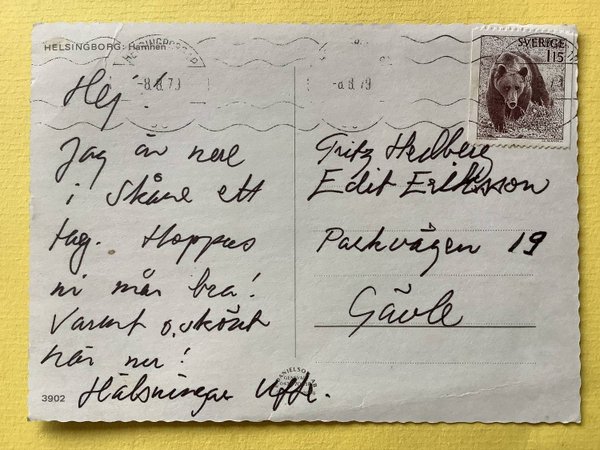 HELSINGBORG: Hamnen
HELSINGBORG
-8.8.79
-8.8.79
SVERIGE
115
Hej!
Jag är nere
i Skåne ett
tag. Hoppas
ni mår bra!
Varmt o. skönt
här ner!
Hälsningar Uffe.
Fritz Hedberg
Edit Eriksson
Parkvägen 19
Gävle
3902